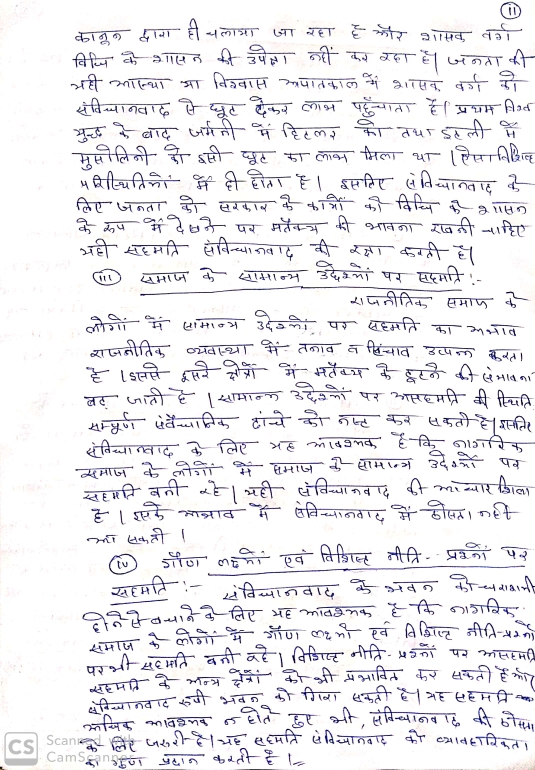 11
कानून द्वारा ही चलाया जा रहा है और शासक वर्ग
विधि के शासन की उपेक्षा नहीं कर रहा है। जनता की
यही आस्था या विश्वास आपातकाल में शासक वर्ग को
संविधानवाद से छूट देकर लाभ पहुँचाता है। प्रथम विश्व
युद्ध के बाद जर्मनी में हिटलर को तथा इटली में
मुसोलिनी को इसी छूट का लाभ मिला था। ऐसा विशिष्ट
परिस्थितियों में ही होता है। इसलिए संविधानवाद के
लिए जनता को सरकार के कार्यों को विधि के शासन
के रूप में देखने पर मतैक्य की भावना रखनी चाहिए
यही सहमति संविधानवाद की रक्षा करती है।
(iii) समाज के सामान्य उद्देश्यों पर सहमति :-
राजनीतिक समाज के
लोगों में सामान्य उद्देश्यों पर सहमति का अभाव
राजनीतिक व्यवस्था में तनाव व खिंचाव उत्पन्न करता
है। इससे दूसरे क्षेत्रों में मतैक्य के टूटने की संभावना
बढ़ जाती है। सामान्य उद्देश्यों पर असहमति की स्थिति
सम्पूर्ण संवैधानिक ढांचे को नष्ट कर सकती है। इसलिए
संविधानवाद के लिए यह आवश्यक है कि नागरिक
समाज के लोगों में समाज के सामान्य उद्देश्यों पर
सहमति बनी रहे। यही संविधानवाद की आधारशिला
है। इसके अभाव में संविधानवाद में ठोसता नहीं
आ सकती।
(iv) गौण लक्ष्यों एवं विशिष्ट नीति-प्रश्नों पर
सहमति :- संविधानवाद के भवन को धराशायी
होने से बचाने के लिए यह आवश्यक है कि नागरिक
समाज के लोगों में गौण लक्ष्यों एवं विशिष्ट नीति-प्रश्नों
पर भी सहमति बनी रहे। विशिष्ट नीति-प्रश्नों पर असहमति
सहमति के अन्य क्षेत्रों को भी प्रभावित कर सकती है और
संविधानवाद रूपी भवन को गिरा सकती है। यह सहमति
अधिक आवश्यक न होते हुए भी, संविधानवाद की ठोसता
के लिए जरूरी है। यह सहमति संविधानवाद को व्यावहारिकता
का गुण प्रदान करती है।
CS Scanned with
CamScanner